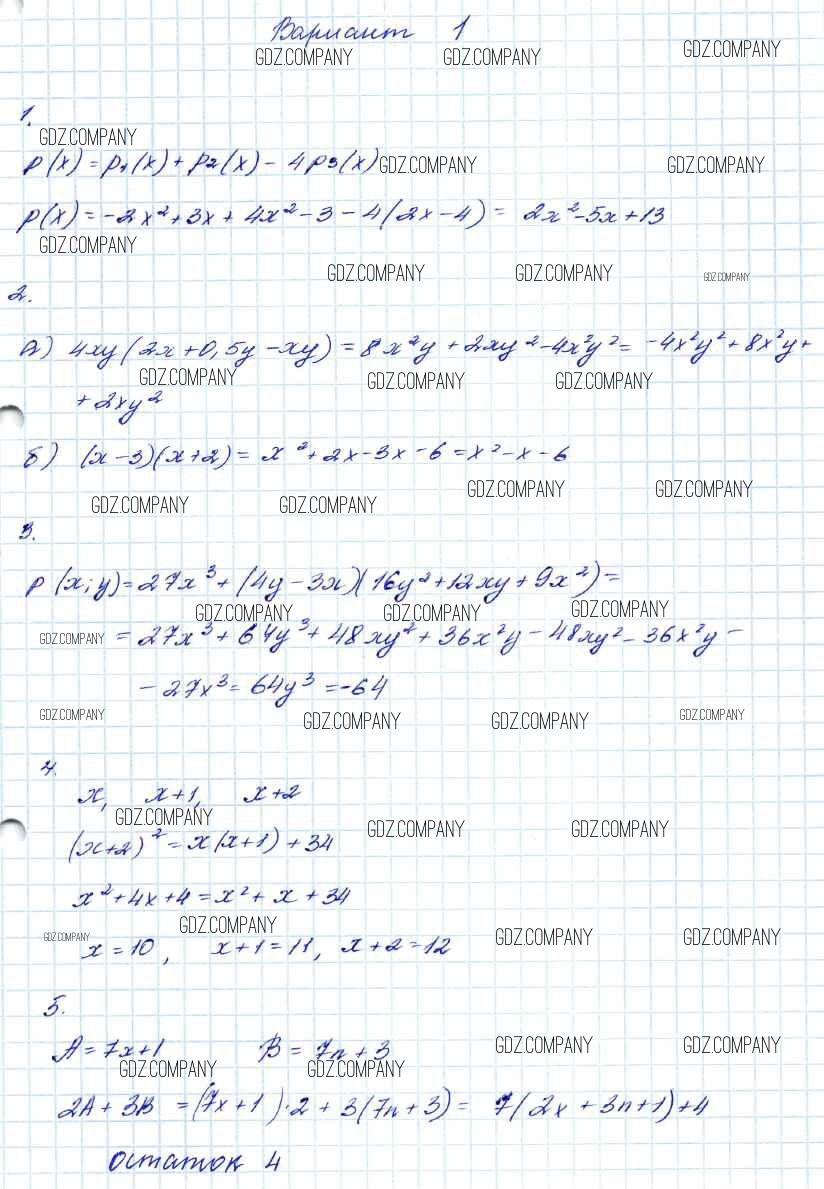 Вариант 1
GDZ.COMPANY GDZ.COMPANY GDZ.COMPANY
1.
GDZ.COMPANY
p(x) = p1(x) + p2(x) - 4p3(x) GDZ.COMPANY GDZ.COMPANY
p(x) = -2x² + 3x + 4x² - 3 - 4(2x - 4) = 2x² - 5x + 13
GDZ.COMPANY
GDZ.COMPANY GDZ.COMPANY GDZ.COMPANY
2.
а) 4xy(2x + 0,5y - xy) = 8x²y + 2xy² - 4x²y² = -4x²y² + 8x²y +
GDZ.COMPANY GDZ.COMPANY GDZ.COMPANY
+ 2xy²
б) (x - 3)(x + 2) = x² + 2x - 3x - 6 = x² - x - 6
GDZ.COMPANY GDZ.COMPANY GDZ.COMPANY GDZ.COMPANY
3.
p(x; y) = 27x³ + (4y - 3x)(16y² + 12xy + 9x²) =
GDZ.COMPANY GDZ.COMPANY GDZ.COMPANY
GDZ.COMPANY = 27x³ + 64y³ + 48xy² + 36x²y - 48xy² - 36x²y -
- 27x³ = 64y³ = -64
GDZ.COMPANY GDZ.COMPANY GDZ.COMPANY GDZ.COMPANY
4.
x, x+1, x+2
GDZ.COMPANY GDZ.COMPANY GDZ.COMPANY
(x+2)² = x(x+1) + 34
x² + 4x + 4 = x² + x + 34
GDZ.COMPANY GDZ.COMPANY GDZ.COMPANY GDZ.COMPANY
x = 10, x+1 = 11, x+2 = 12
5.
A = 7x+1 B = 7n + 3 GDZ.COMPANY GDZ.COMPANY
GDZ.COMPANY GDZ.COMPANY
2A + 3B = (7x+1)·2 + 3(7n+3) = 7(2x + 3n+1)+4
остаток 4